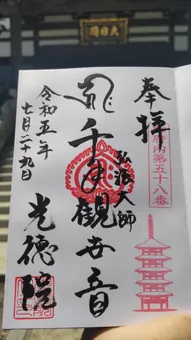 大日閣
奉拝
第五十八番
弘法大師
千手観世音
令和五年
七月二十九日
光徳院